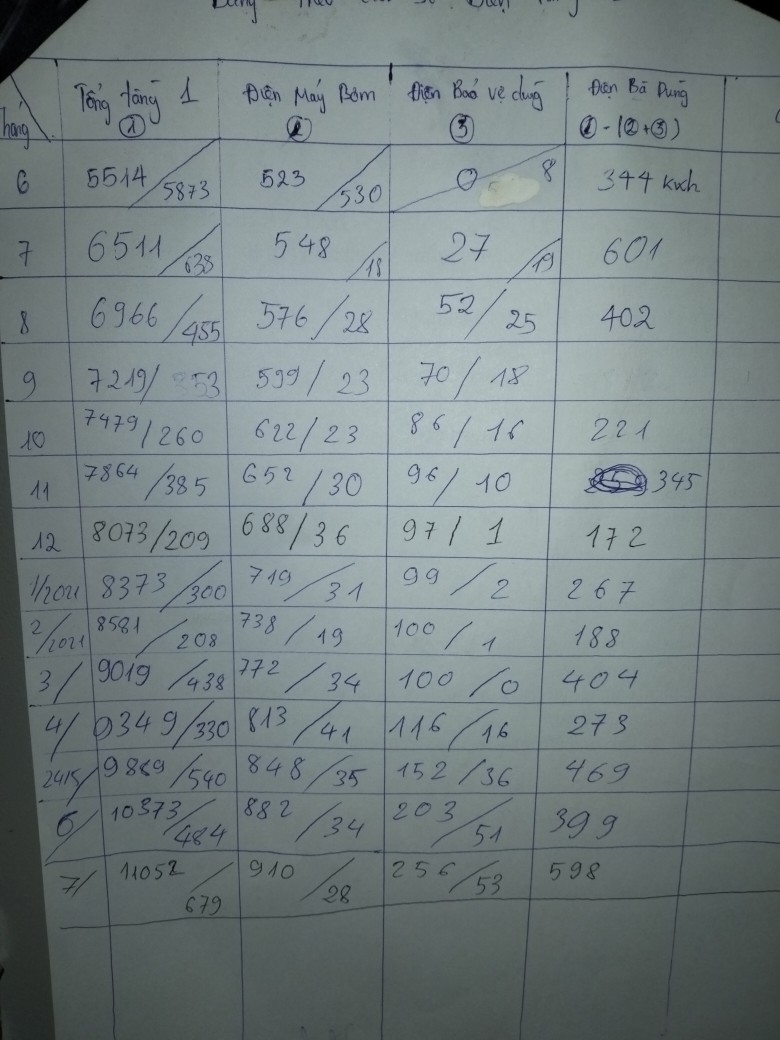 Tổng tầng 1 Điện Máy Bơm Điện Bảo vệ dùng Điện Bà Dung
Tháng ① ② ③ ① - (②+③)
6 5514/5873 523/530 0 8 344 kwh
7 6511/638 548/18 27/19 601
8 6966/455 576/28 52/25 402
9 7219/ 53 599/23 70/18
10 7479/260 622/23 86/16 221
11 7864/385 652/30 96/10 345
12 8073/209 688/36 97/1 172
1/2021 8373/300 719/31 99/2 267
2/2021 8581/208 738/19 100/1 188
3/ 9019/438 772/34 100/0 404
4/ 9349/330 813/41 116/16 273
24/5/ 9889/540 848/35 152/36 469
6/ 10373/484 882/34 203/51 399
7/ 11052/679 910/28 256/53 598